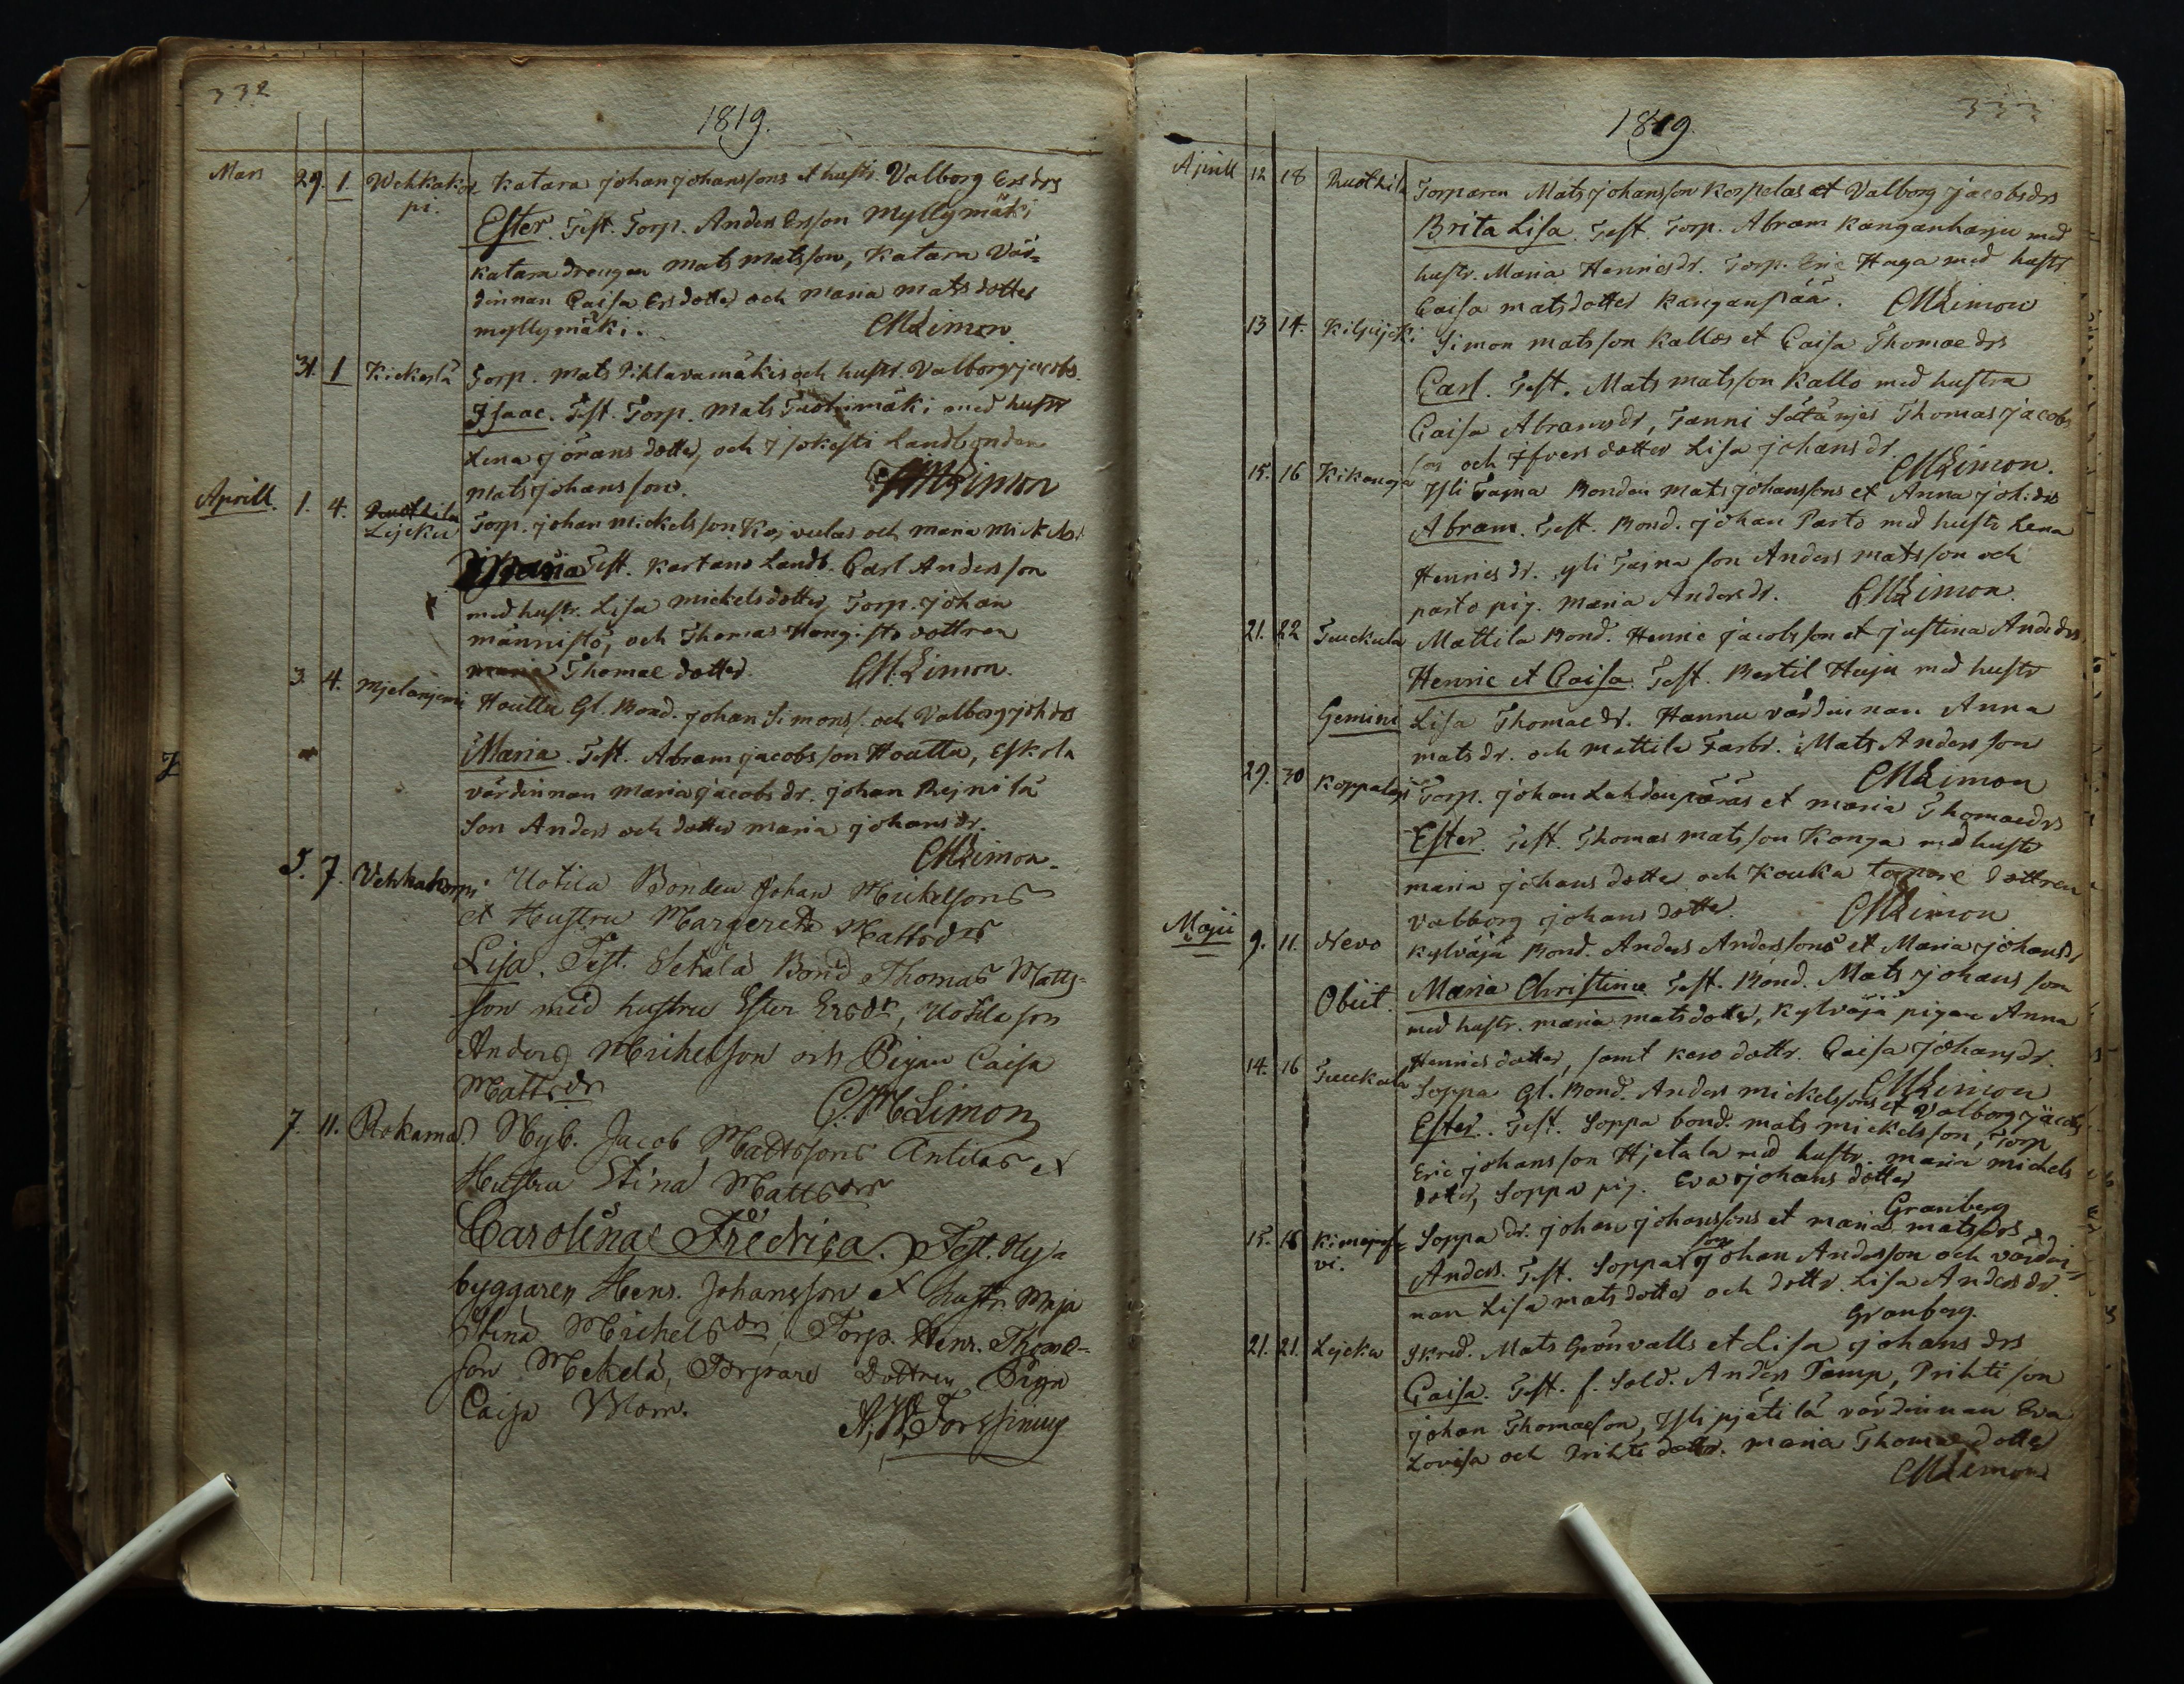 332
1819.
Mars 29. 1. Wehkakor Katara johan johanssons et hustr. Valborg Ersdrs
pi. Ester. Test. Torp. Anders Ersson Myllymäki
Katara drengen Mats Matsson, Katara Vär=
dinnan Caisa Ersdotter och Maria Matsdotter
myllymäki. CMLimon.
31. 1 Kickerlä Torp. Mats Pihlavamäkis och hustr. Valborg jacobs.
Isaac. Test. Torp. Mats Tuohimäki med hustr
Lena jöransdotter, och Landbonden
Mats johansson. CMLimon
Aprill. 1. 4. Ruothila Torp. johan mickelsson Kojvulas och maria Mickelsd.
Lejcku Maria Test. Kartano Landb. Carl Andersson
med hustr. Lisa mickelsdotter, Torp. johan
männistö, och Thomas Hongisto dottren
maria Thomae dotter. CMLimon.
3. 4. Mjelonjemi Houttu Gl. Bond. johan Simons. och Valborg joh.drs
Maria. Test. Abram jacobsson Houttu, Eskola
värdinnan Maria jacobsdr. johan Rejnilä
Son Anders och dotter maria johansdr.
CMLimon.
5. 7. Vehkakorpi Uotila Bonden Johan Mickelsons
et Hustru Margereta Mattsdrs
Lisa. Test. Setälä Bond Thomas Matts=
son med hustru Ester Ersdr, Uotila son
Anders Michelson och Pigan Caisa
Mattsdr C.M.Limon
7. 11. Rokama. Nyb. Jacob Mattssons Antilas et
Hustru Stina Mattsdrs
Carolina Fredrica. Test. Ny
byggaren Henr. Johansson et hustr. Maja
Stina Michelsdr, Torp. Henr. Thoma=
son Mekelä, Torpare Dottren Pign
Caisa A.W.Forssinus
333
1819.
Aprill 12 18 Ruothila Torparen Mats johansson Korpelas et Valborg jacobsdrs
Brita Lisa. Test. Torp. Abram Kanganharju med
hustr. Maria Henricsdr. Torp. Eric Haga med hustr
Caisa matsdotter Kanganpää. CMLimon
13 14. Kilpijoki Simon matsson Kallos et Caisa Thomae drs
Carl. Test. Mats matsson Kallo med hustru
Caisa Abramsdr, Tanni Thomas jacobs
son och Ifvers dotter Lisa johansdr. CMLimon.
15. 16 Kikanoja Yli Tajna Bonden Mats johanssons et Anna joh.drs
Abram. Test. Bond. johan Parto med hustr Lena
Henricsdr. yli Tajna son Anders matsson och
parto pig. Maria Andersdr. CMLimon.
21. 22 Tuckula Mattila Bond. Henric jacobsson et justina And.drs
Henric et Caisa. Test. Bertil Huju med hustr
Gemini Lisa Thomaedr. Hannu värdinnan Anna
matsdr. och mattila Farbr. Mats Andersson
CMLimon
29. 30 Koppaloj Torp. johan Lahdenperäs et maria Thomaedrs
Ester. Test. Thomas matsson Konga med hustr
maria johansdotter och Kouka torpare dottren
valborg johansdotter. CMLimon
Maji 9. 11. Nevo Kylväjä Bond. Anders Anderssons et Maria johansdr
Obiit. Maria Christina. Test. Bond. Mats johansson
med hustr. maria matsdotter, Kylväjä pigan Anna
Henricsdotter, samt Kero dottr. Caisa johansdr.
CMLimon
14. 16 Tuckula Soppa Gl. Bond. Anders mickelssons et Valborg jacobs
Ester. Test. Soppa bond. mats mickelsson, Torp
Eric johansson Hjetala med hustr. maria michels
doter, Soppa pig. Eva johansdotter
Granberg
15. 16 Soppa dr. johan johanssons et maria matsdrs
vi. Anders. Test. Soppa son johan Andersson och värdin=
nan Lisa matsdotter och dottr. Lisa Andersdr.
Granberg.
21. 21. Lejcku Skred. Mats Grönvalls et Lisa johansdrs
Caisa. Test. f. Sold. Anders Tamp, Prihti son
johan Thomaeson, Yli pjätilä värdinnan Eva
Lovisa och Prihti dottr. maria Thomaedotter
CMLimon